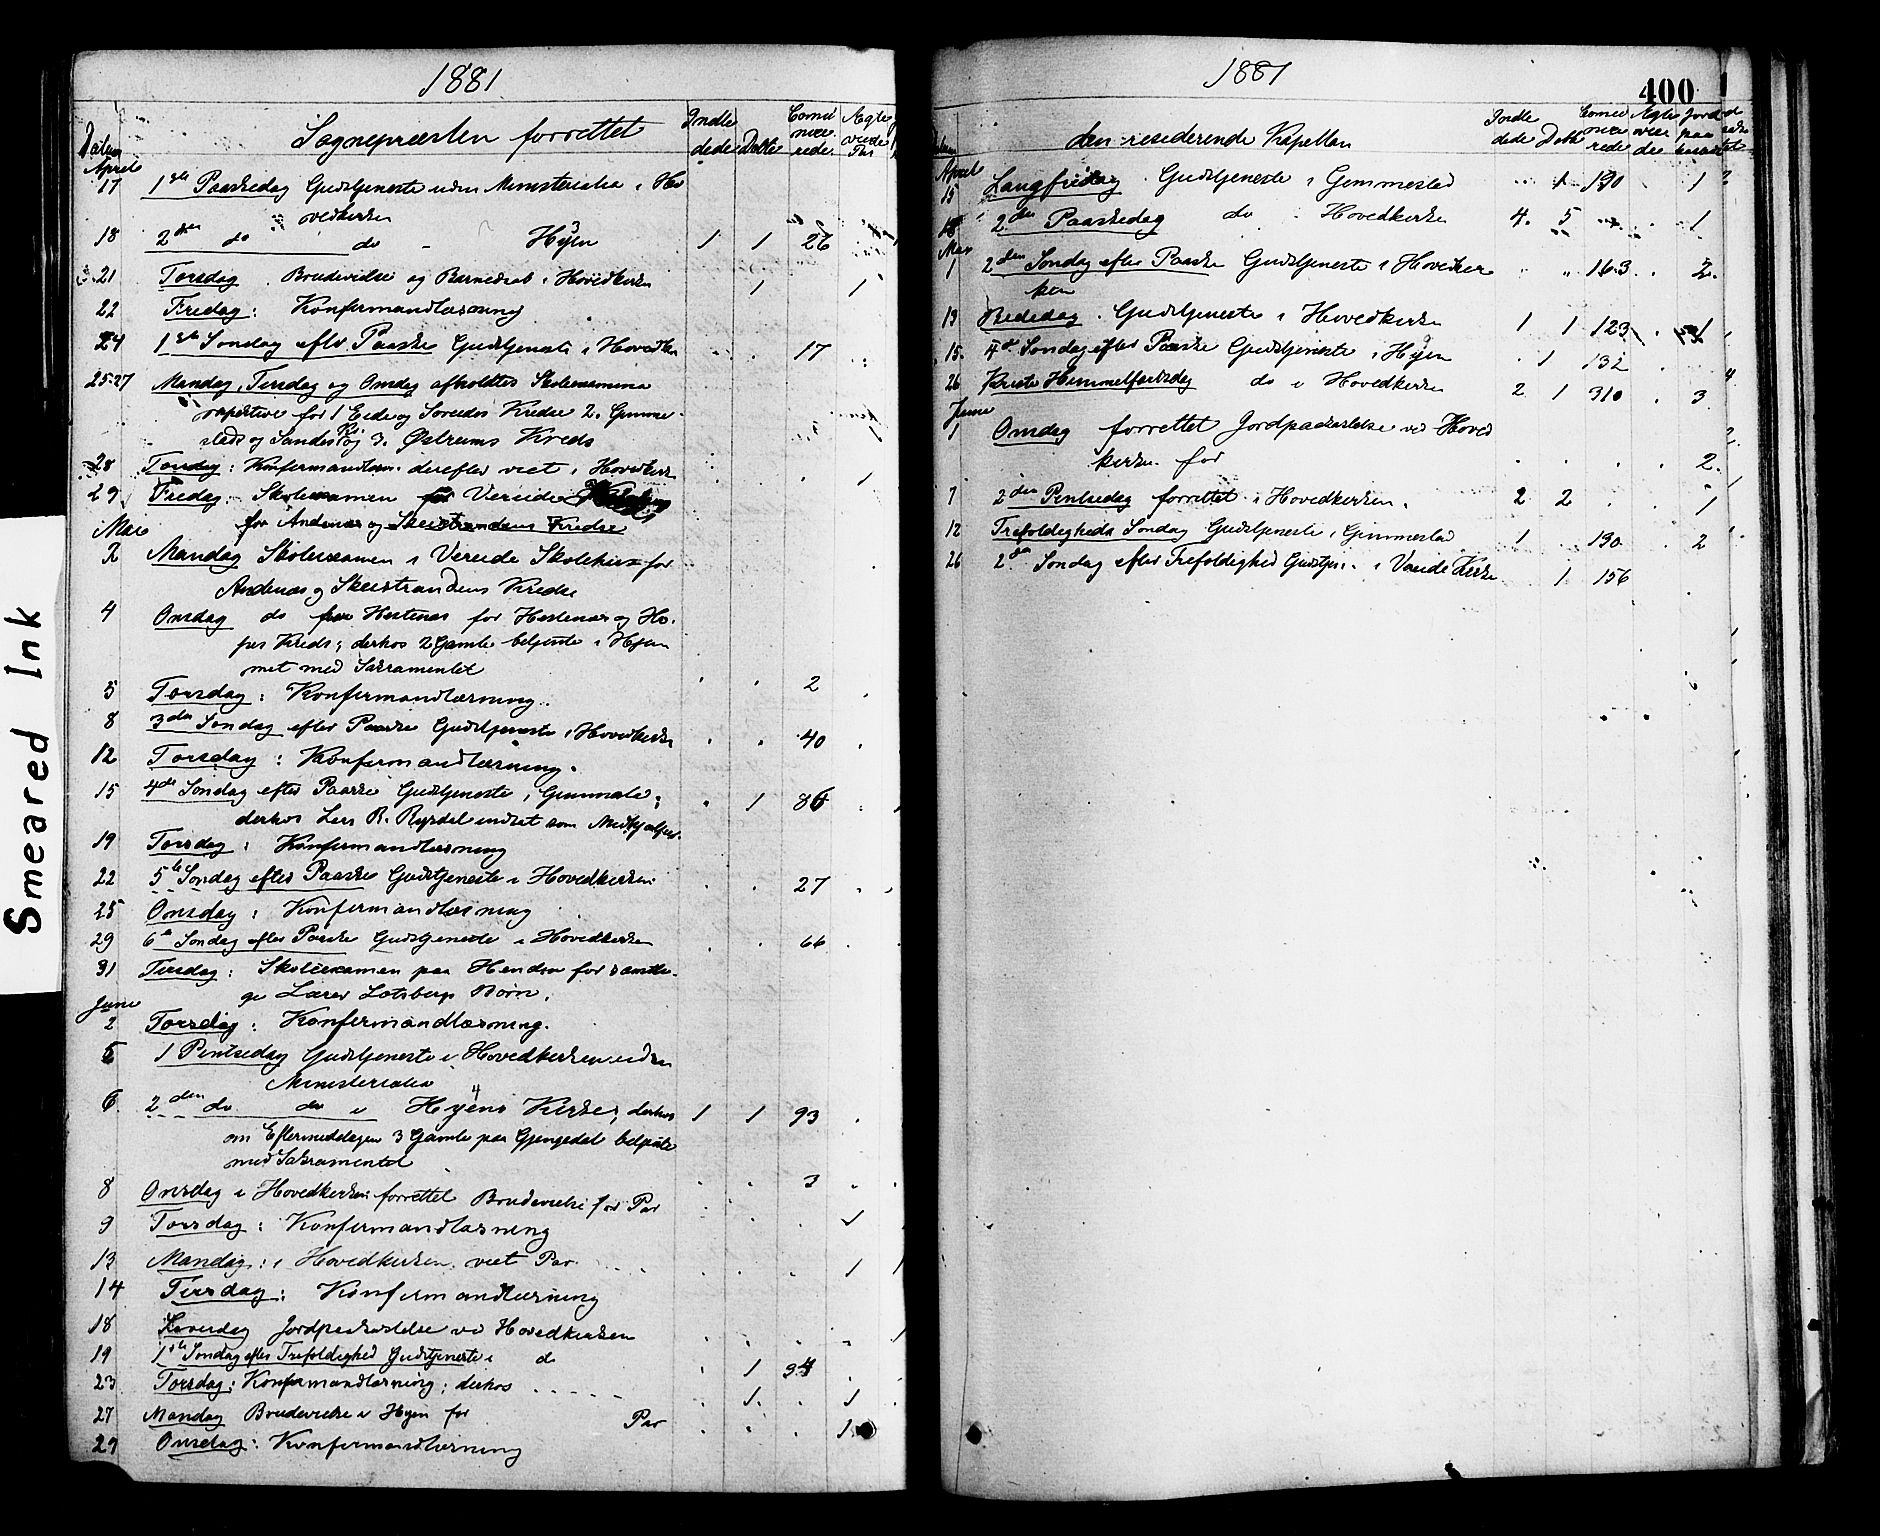 Smeared Ink
1881
Datum
Sognepræsten forrettet
Indle dede
Døbte
Comu nice rede.
Ægte viede Par
April
17 1ste Paaskedag Gudstjeneste uden Ministerialia i Ho
vedkirken
18 2den do do - Hyen 1 1 26
21 Torsdag Brudevielse og Barnedaab i Hovedkirken 1 1
22 Fredag: Konfirmandlæsning
24 1ste Søndag efter Paaske Gudstjeneste i Hovedkn 17
25-27 Mandag, Tirsdag og Onsdag afholdtes Skoleexamina
respective for 1 Eide og Søreides Kredse 2. Gimme-
stads og Sandes Kr. og 3. Østrums Kreds
28 Torsdag: Konfirmandlæsn. derefter viet i Hovedkirk 1
29 Fredag Skoleexamen for Vereide
for Andenæs og Skeistrandens Kredse
Mai
2 Mandag Skoleexamen i Vereide Skolehus for
Andenæs og Skeistrandens Kredse
4 Onsdag do paa Hestenæs for Hestenæs og Ho-
pes Kreds; derhos 2 Gamle betjente i Hjem
met med Sakramentet 2
5 Torsdag: Konfirmandlæsning.
8 3die Søndag efter Paaske Gudstjeneste i Hovedkirken 40
12 Torsdag: Konfirmandlæsning.
15 4de Søndag efter Paaske Gudstjeneste i Gimmestad; 1 86
derhos Lars R. Ryssdal indsat som Medhjælper.
19 Torsdag: Konfirmandlæsning
22 5te Søndag efter Paaske Gudstjeneste i Hovedkirken 27
25 Onsdag: Konfirmandlæsning
29 6te Søndag efter Paaske Gudstjeneste i Hovedkirken 66
31 Tirsdag: Skoleexamen paa Henden for samtli-
ge Lærer Lotsbergs Børn.
Juni
2 Torsdag: Konfirmandlæsning.
5 1 Pintsedag Gudstjeneste i Hovedkirken uden
Ministerialia
6 2den do do i Hyens Kirke; derhos 1 1 93
om Eftermiddagen 3 Gamle paa Gjengedal betjente
med Sakramentet 3
8 Onsdag i Hovedkirken forrettet Brudevielse for Par 1
9 Torsdag: Konfirmandlæsning
13 Mandag: i Hovedkirken viet Par 1 1
14 Tirsdag: Konfirmandlæsning
18 Løverdag Jordpaakastelse ved Hovedkirken 1
19 1ste Søndag efter Trefoldighed Gudstjeneste i do 1 34
23 Torsdag: Konfirmandlæsning; derhos 1 1
27 Mandag Brudevielse i Hyen for Par 1
29 Onsdag: Konfirmandlæsning
1881
400
den residerende Kapellan
Indle dede
Døbt
Comu nice rede
Ægte vie de
Jord paa kastet
April
15 Langfredag Gudstjeneste i Gimmestad 1 190 1
18 2den Paaskedag do i Hovedkirke 4 5 1
Mai
1 2den Søndag efter Paaske Gudstjeneste i Hovedkir 163 2
ken
13 Bededag Gudstjeneste i Hovedkirken 1 1 123 1
15 4de Søndag efter Paaske Gudstjeneste i Hyen 1 132
26 Kristi Himmelfartsdag do i Hovedkirken 2 1 310 3
Juni
1 Onsdag forrettet Jordpaakastelse ved Hoved
kirken for 2
7 2den Pintsedag forrettet i Hovedkirken. 2 2 1
12 Trefoldigheds Søndag Gudstjeneste i Gimmestad 1 190 2
26 2den Søndag efter Trefoldighed Gudstjen. i Vereide Kirke 1 156